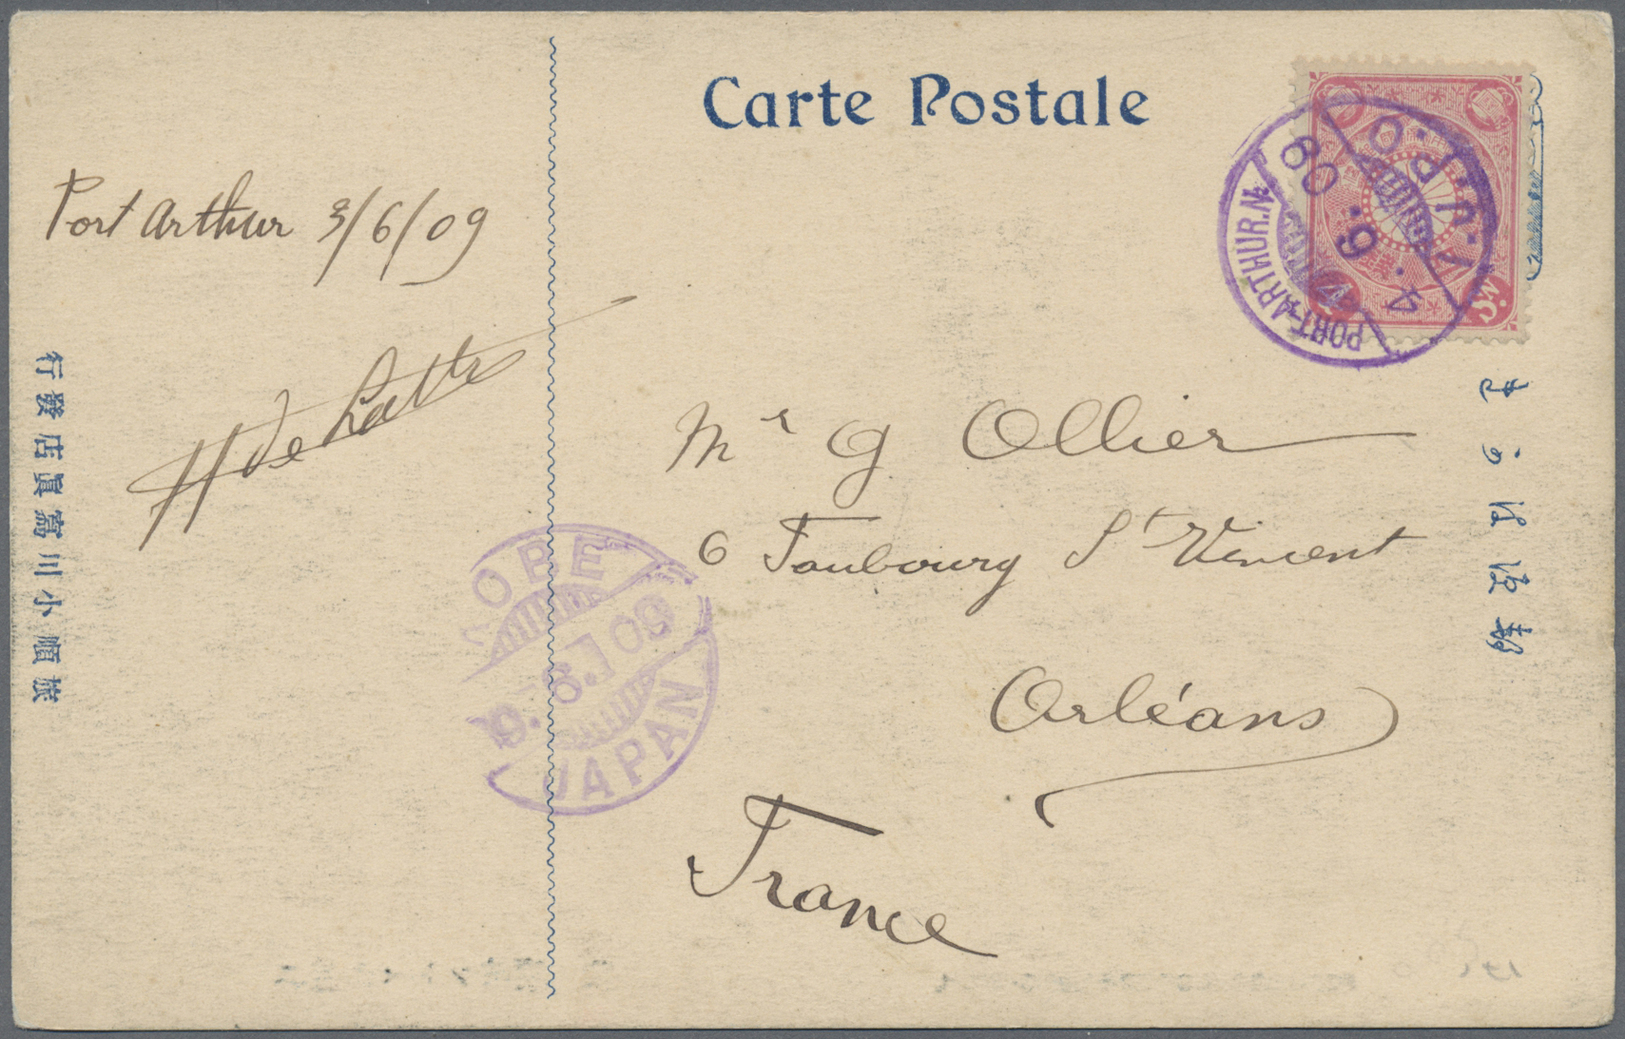 Carte Postale
Port Arthur 3/6/09
H de Latte
Mr G Ollier
6 Faubourg St Vincent
Orléans
France
I.J.P.O.
4.6.09
PORT-ARTHUR.N
KOBE
9.6.09
JAPAN
旅順小川寫眞店發行
5 Sn.